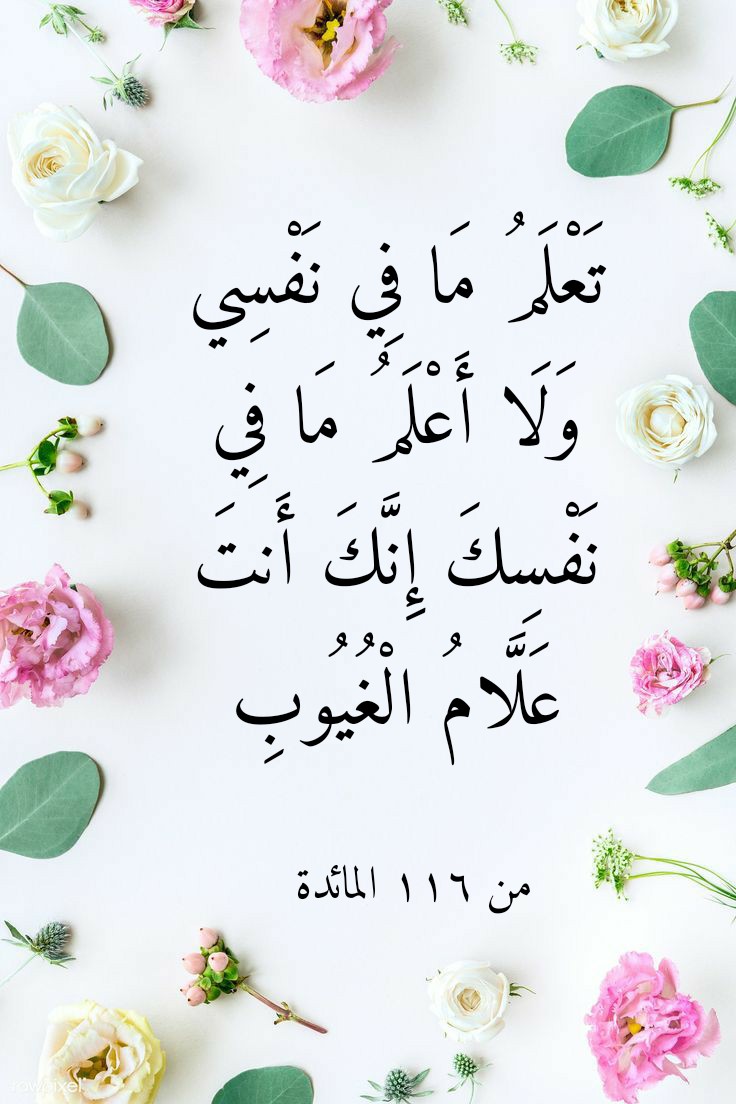 تَعْلَمُ مَا فِي نَفْسِي
وَلَا أَعْلَمُ مَا فِي
نَفْسِكَ إِنَّكَ أَنتَ
عَلَّامُ الْغُيُوبِ
من ١١٦ المائدة
rawpixel